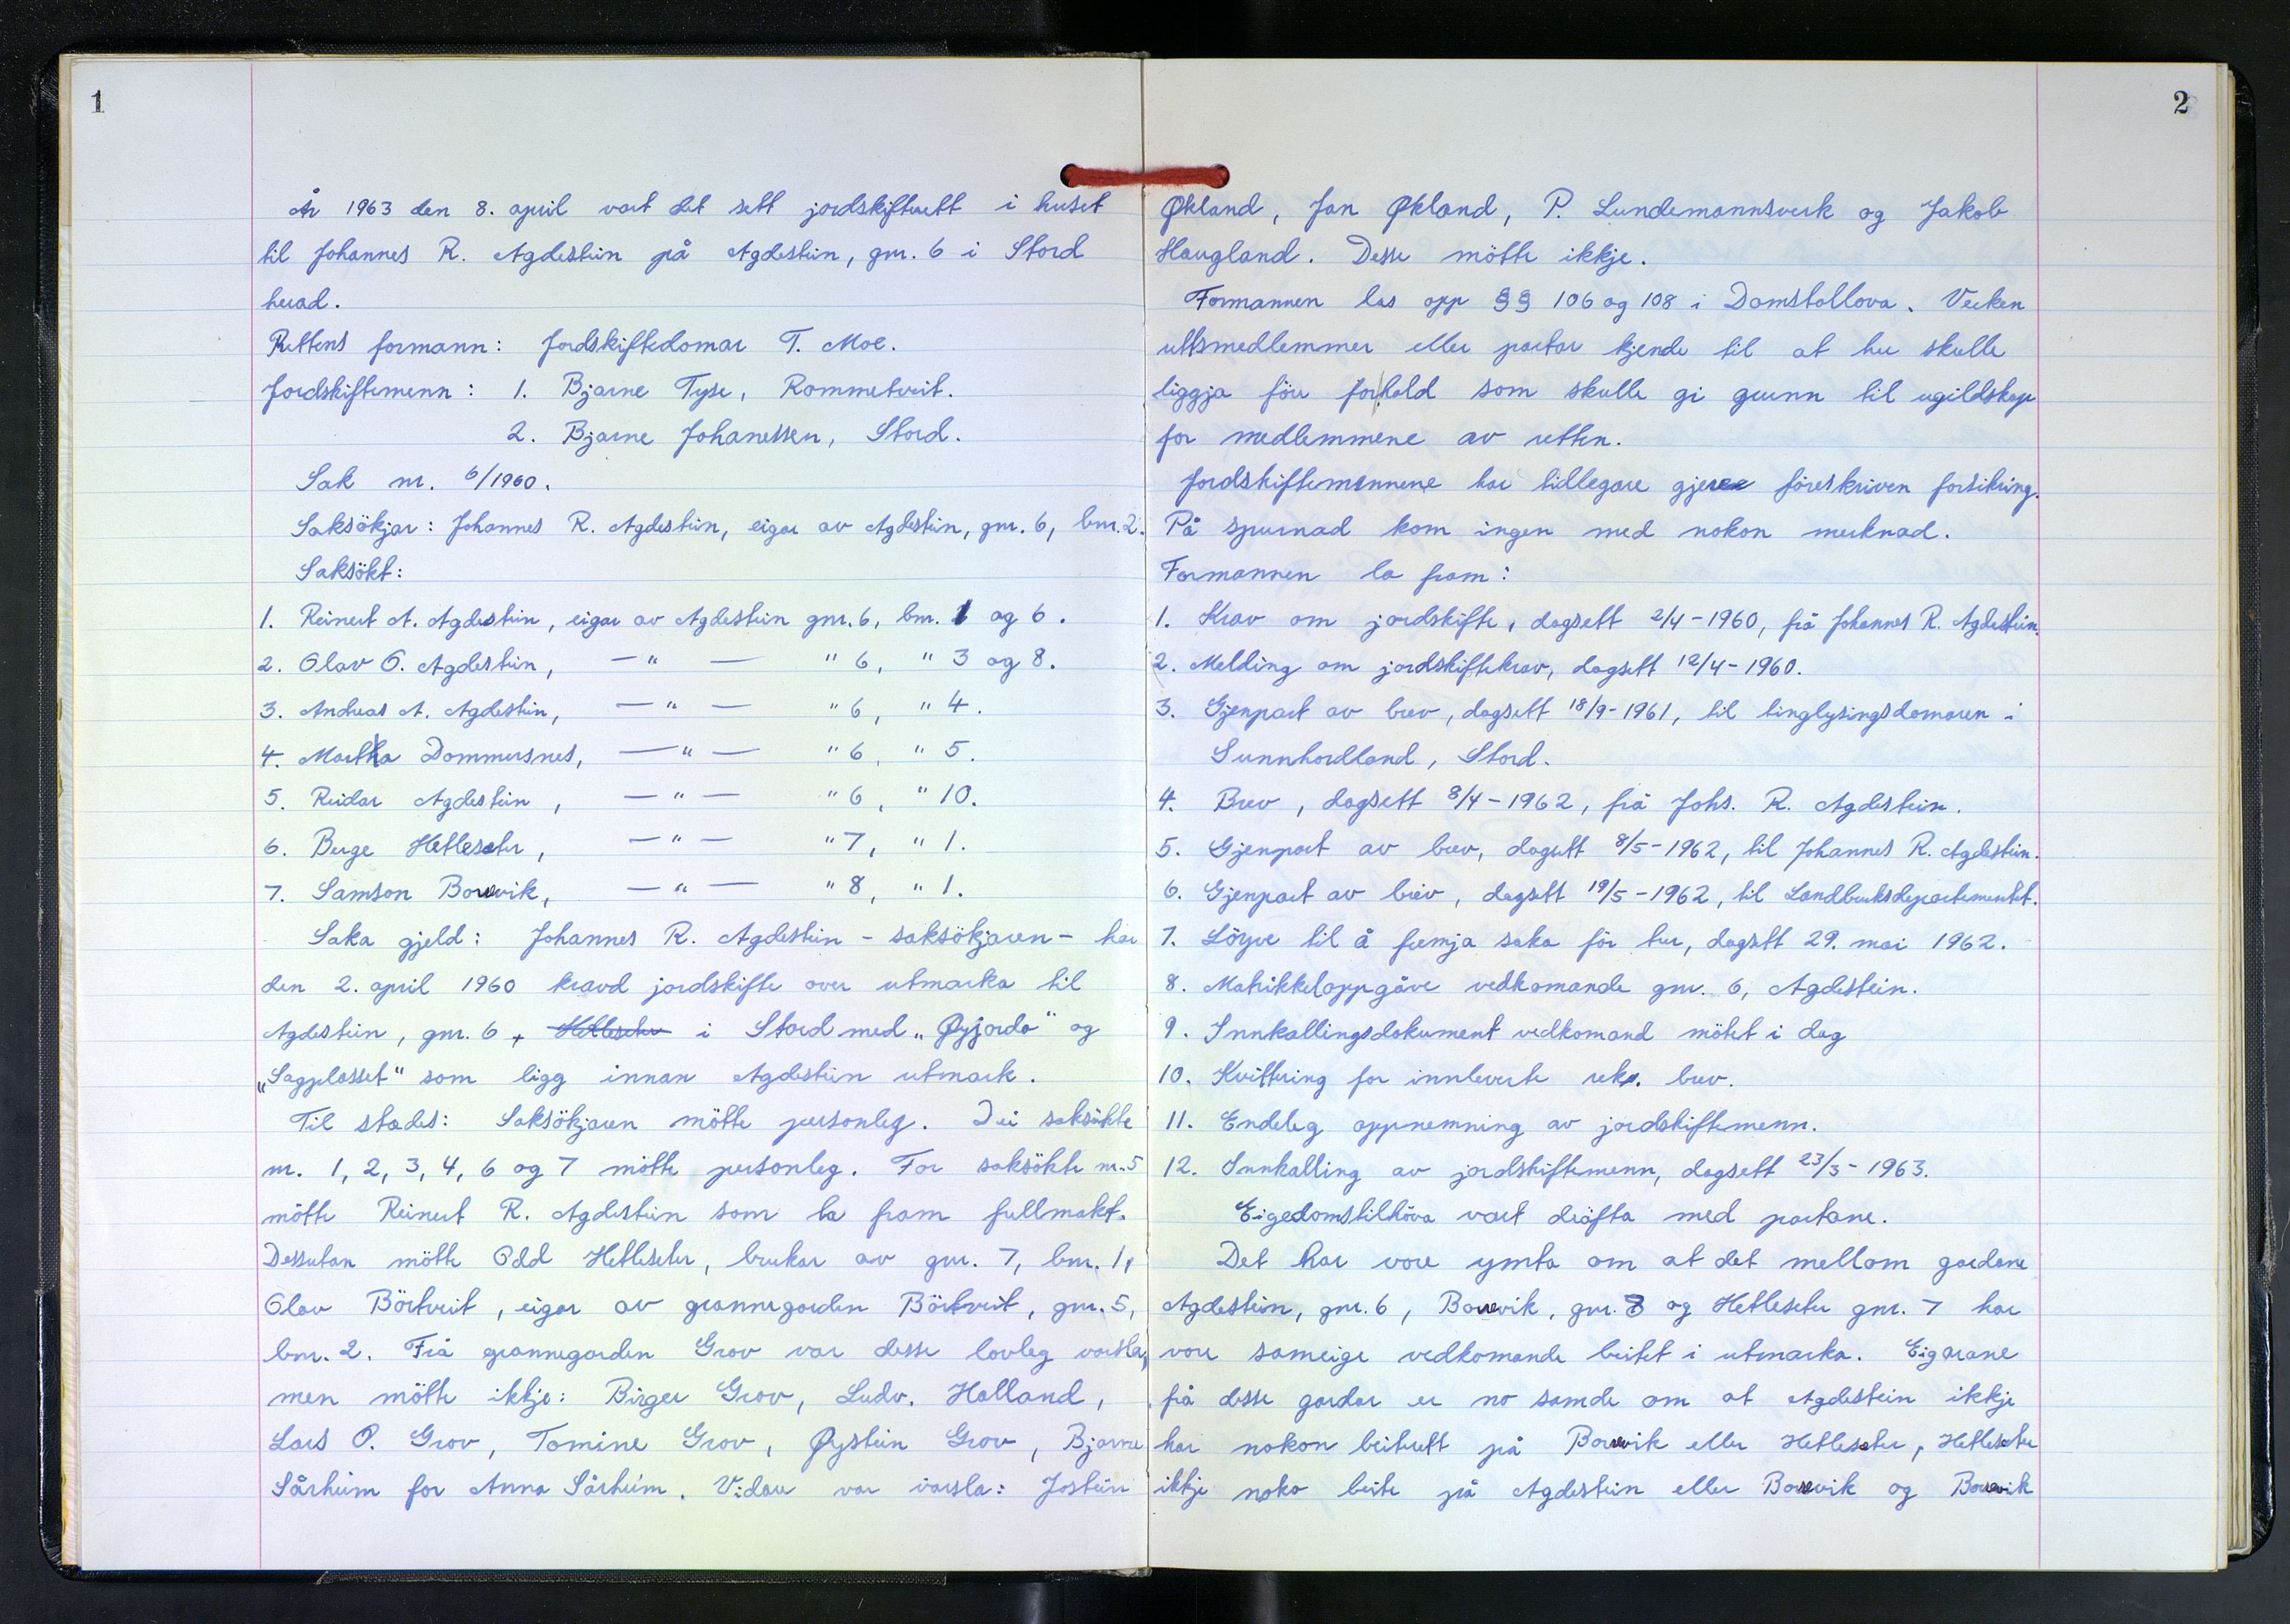 1
År 1963 den 8. april vart det sett jordskifterett i huset
til Johannes R. Agdestein på Agdestein, gnr. 6 i Stord
herad.
Rettens formann: Jordskiftedomar T. Moe.
Jordskiftemenn: 1. Bjarne Tyse, Rommetveit.
2. Bjarne Johanessen, Stord.
Sak nr. 6/1960.
Saksökjar: Johannes R. Agdestein, eigar av Agdestein, gnr. 6, bnr. 2.
Saksökt:
1. Reinert A. Agdestein, eigar av Agdestein gnr. 6, bnr. 1 og 6.
2. Olav O. Agdestein, — " — " 6, " 3 og 8.
3. Andreas A. Agdestein, — " — " 6, " 4.
4. Martha Dommersnes, — " — " 6, " 5.
5. Reidar Agdestein, — " — " 6, " 10.
6. Berge Hetleseter, — " — " 7, " 1.
7. Samson Borevik, — " — " 8, " 1.
Saka gjeld: Johannes R. Agdestein - saksökjaren - har
den 2. april 1960 kravd jordskifte over utmarka til
Agdestein, gnr. 6, Hetleseter i Stord med „Øyjordo" og
„Sagplasset" som ligg innan Agdestein utmark.
Til stades: Saksökjaren mötte personleg. Dei saksökte
nr. 1, 2, 3, 4, 6 og 7 mötte personleg. For saksökte nr. 5
mötte Reinert R. Agdestein som la fram fullmakt.
Dessutan mötte Odd Hetleseter, brukar av gnr. 7, bnr. 1,
Olav Börtveit, eigar av grannegarden Börtveit, gnr. 5,
bnr. 2. Frå grannegarden Grov var desse lovleg varsla,
men mötte ikkje: Birger Grov, Ludv. Halland,
Lars O. Grov, Tomine Grov, Øystein Grov, Bjarne
Sårheim for Anna Sårheim. Vidare var varsla: Jostein
2
Økland, Jan Økland, P. Lundemannsverk og Jakob
Haugland. Desse mötte ikkje.
Formannen las opp §§ 106 og 108 i Domstollova. Verken
rettsmedlemmer eller partar kjende til at her skulle
liggja före forhold som skulle gi grunn til ugildskap
for medlemmene av retten.
Jordskiftemennene har tidlegare gjeve föreskriven forsikring.
På spurnad kom ingen med nokon merknad.
Formannen la fram:
1. Krav om jordskifte, dagsett 2/4 - 1960, frå Johannes R. Agdestein.
2. Melding om jordskiftekrav, dagsett 12/4 - 1960.
3. Gjenpart av brev, dagsett 18/9 - 1961, til tinglysingsdomaren i
Sunnhordland, Stord.
4. Brev, dagsett 8/4 - 1962, frå Johs. R. Agdestein.
5. Gjenpart av brev, dagsett 8/5 - 1962, til Johannes R. Agdestein.
6. Gjenpart av brev, dagsett 19/5 - 1962, til Landbruksdepartementet.
7. Löyve til å fremja saka för tur, dagsett 29. mai 1962.
8. Matrikkeloppgåve vedkomande gnr. 6, Agdestein.
9. Innkallingsdokument vedkomand mötet i dag
10. Kvittering for innleverte rek. brev.
11. Endeleg oppnemning av jordskiftemenn.
12. Innkalling av jordskiftemenn, dagsett 23/3 - 1963.
Eigedomstilhöva vart dröfta med partane.
Det har vore ymta om at det mellom gardane
Agdestein, gnr. 6, Borevik, gnr. 8 og Hetleseter gnr. 7 har
vore sameige vedkomande beitet i utmarka. Eigarane
frå desse gardar er no samde om at Agdestein ikkje
har nokon beiterett på Borevik eller Hetleseter, Hetleseter
ikkje noko beite på Agdestein eller Borevik og Borevik